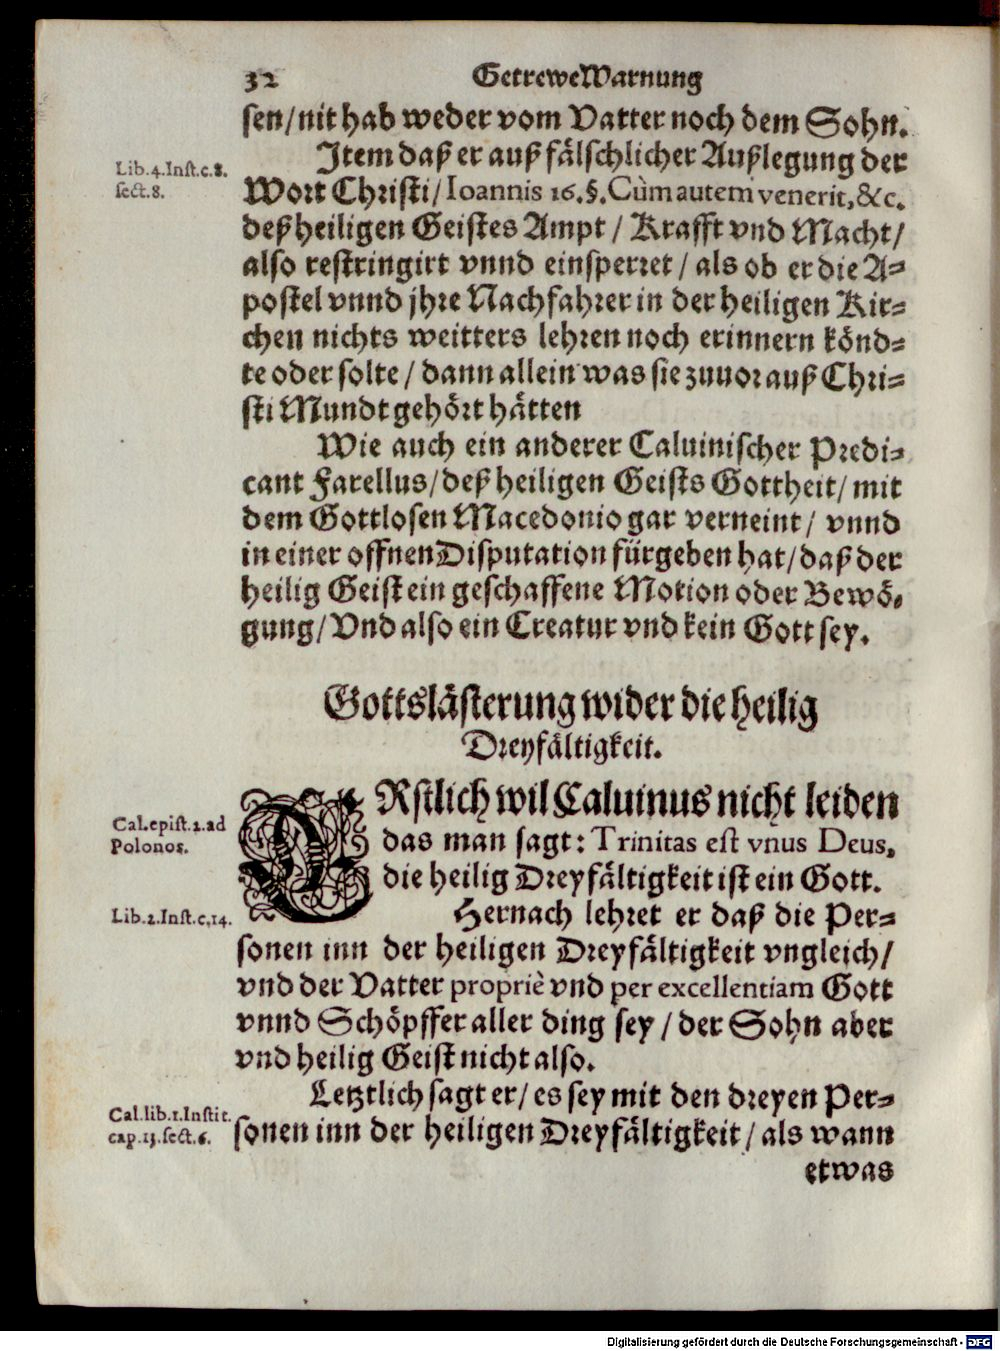 32 Getrewe Warnung
sen/nit hab weder vom Vatter noch dem Sohn.
Jtem daß er auß fälschlicher Außlegung der
Lib.4.Inst.c.8.
sect.8.
Wort Christi/ Ioannis 16.§. Cùm autem venerit, &c.
deß heiligen Geistes Ampt / Krafft vnd Macht/
also restringirt vnnd einsperret / als ob er die A-
postel vnnd jhre Nachfahrer in der heiligen Kir-
chen nichts weitters lehren noch erinnern könd-
te oder solte / dann allein was sie zuuor auß Chri-
sti Mundt gehört hätten
Wie auch ein anderer Caluinischer Predi-
cant Farellus/deß heiligen Geists Gottheit/ mit
dem Gottlosen Macedonio gar verneint/ vnnd
in einer offnen Disputation fürgeben hat/daß der
heilig Geist ein geschaffene Motion oder Bewö-
gung/Vnd also ein Creatur vnd kein Gott sey.
Gottslästerung wider die heilig
Dreyfältigkeit.
ERstlich wil Caluinus nicht leiden
Cal.epist.2.ad
Polonos.
das man sagt: Trinitas est vnus Deus,
die heilig Dreyfältigkeit ist ein Gott.
Lib.2.Inst.c.14.
Hernach lehret er daß die Per-
sonen inn der heiligen Dreyfältigkeit vngleich/
vnd der Vatter propriè vnd per excellentiam Gott
vnnd Schöpffer aller ding sey / der Sohn aber
vnd heilig Geist nicht also.
Letztlich sagt er/ es sey mit den dreyen Per-
Cal.lib.1.Instit.
cap.13.sect.6.
sonen inn der heiligen Dreyfältigkeit / als wann
etwas
Digitalisierung gefördert durch die Deutsche Forschungsgemeinschaft - DFG